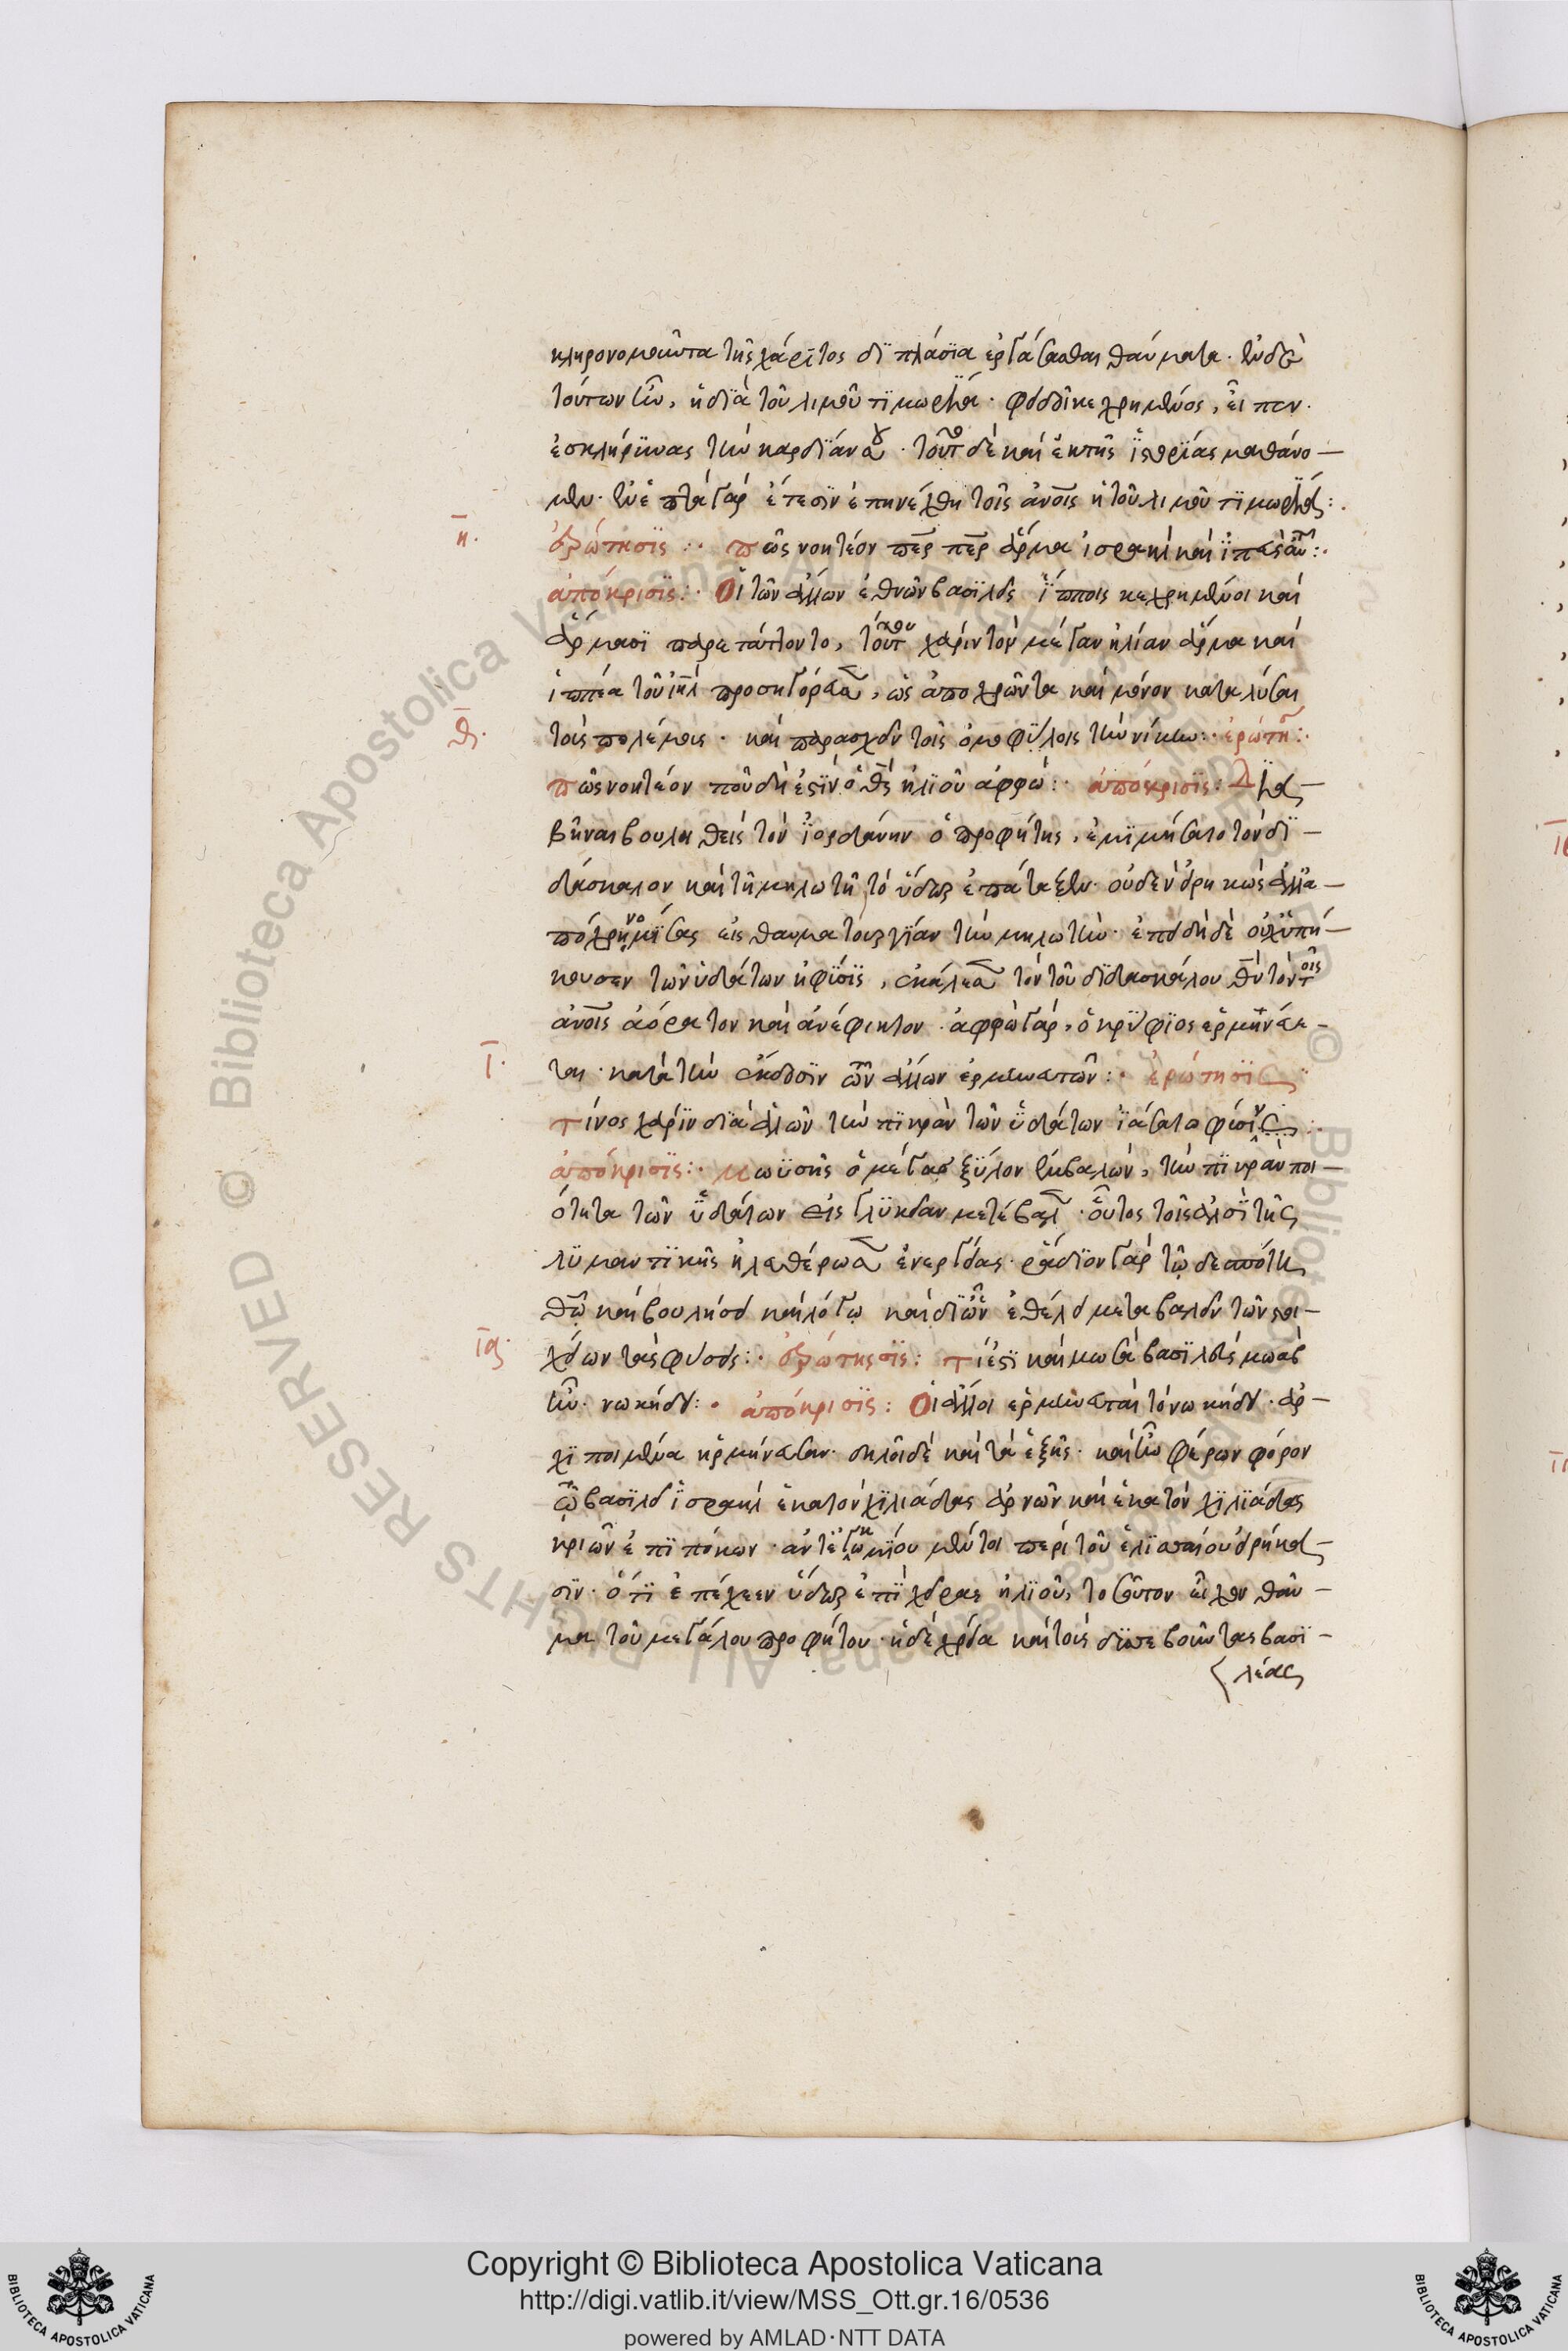 κληρονομοῦντα τῆς χάριτος διπλάσϊα ἐργάσασθαι θαύματα. ἐν δὲ
τούτων ἦν, ἡ δϊὰ τοῦ λιμοῦ τϊμωρία. φειδοῖ κεχρημένος, εἶπεν.
ἐσκλήρϋνας τὴν καρδίαν αὐτοῦ. τοῦτο δὲ καὶ ἐκ τῆς ἱστορίας μανθάνο-
μεν. ἐν ἑπτὰ γὰρ ἔτεσϊν ἐπηνέχθη τοῖς ἀνοις ἡ τοῦ λιμοῦ τϊμωρία:
η. ἐρώτησϊς: πῶς νοητέον περ περ ἅρμα ἰσραηλ καὶ ἱππεὺς αὐτοῦ:
ἀπόκρισϊς: Οἱ τῶν ἄλλων ἐθνῶν βασϊλεῖς ἵπποις κεχρημένοι καὶ
ἅρμασϊ παρετάττοντο, τούτου χάριν τὸν μέγαν ἠλίαν ἅρμα καὶ
ἱππέα τοῦ ιηλ προσηγόρευσε, ὡς ἀποχρῶντα καὶ μόνον καταλῦσαι
τοὺς πολέμους. καὶ παρασχεῖν τοῖς ὁμοφϋλοις τὴν νίκην: ἐρώτη:
θ. πῶς νοητέον ποῦ δή ἐστϊν ὁ θς ἠλϊοῦ ἀφφώ: ἀπόκρισϊς: Δια-
βῆναι βουληθεὶς τὸν ϊορδάνην ὁ προφήτης, ἐμϊμήσατο τὸν δϊ-
δάσκαλον καὶ τῆ μηλωτῆ τὸ ὕδωρ ἐπάταξεν. οὐδὲν εἰρηκὼς ἀλλ' ἀ-
ποχρῆν νομϊσας εἰς θαυματουργϊαν τὴν μηλωτὴν. ἐπειδὴ δὲ οὐχ ὑπή-
κουσεν τῶν ὑδάτων ἡ φϋσϊς, ἐκάλεσε τὸν τοῦ διδασκάλου θν τὸν τοῖς
ἀνοις ἀόρατον καὶ ἀνέφικτον. ἀφφὼ γὰρ, ὁ κρϋφϊος ἑρμηνεύε-
ι. ται. κατὰ τὴν ἔκδοσϊν τῶν ἄλλων ἑρμηνευτῶν: ἐρώτησϊς
τίνος χάρϊν δϊὰ ἁλῶν τὴν πϊκρὰν τῶν ὑδάτων ϊάσατο φύσϊν:
ἀπόκρισϊς: μωϋσῆς ὁ μέγας ξϋλον ἐμβαλὼν, τὴν πϊκρὰν ποι-
ότητα τῶν ὑδάτων εἰς γλϋκεῖαν μετέβαλε. οὗτος τοῖς ἁλσϊ τῆς
λϋμαντϊκῆς ἠλευθέρωσε ἐνεργείας. ῥάδϊον γὰρ τῶ δεσπότη
θω καὶ βουλήσει καὶ λόγω καὶ δϊ' ὧν ἐθέλει μεταβαλεῖν τῶν στοι-
ια. χείων τὰς φύσεις: ἐρώτησϊς: τί ἐστϊ καὶ μωσὰ βασϊλεὺς μωὰβ
ἦν νωκήδ: ἀπόκρισϊς: Οἱ ἄλλοι ἑρμηνευταὶ τὸ νωκήδ. ἀρ-
χϊποιμένα ἡρμήνευσαν. δηλοῖ δὲ καὶ τὰ ἑξῆς. καὶ ἦν φέρων φόρον
τῶ βασϊλεῖ ϊσραηλ ἑκατὸν χϊλιάδας ἀρνῶν καὶ ἑκατὸν χϊλϊάδας
κριῶν ἐπϊ πόκων. μέντοι περὶ τοῦ ἐλϊσσαίου εἰρήκα-
σϊν. ὅτϊ ἐπέχεεν ὕδωρ ἐπϊ χεῖρας ἠλϊοῦ, τοσοῦτον εἶχον θαῦ-
μα τοῦ μεγάλου προφήτου. ἡ δὲ χρεία καὶ τοὺς δϊσσεβοῦντας βασϊ-
λέας
Copyright © Biblioteca Apostolica Vaticana
http://digi.vatlib.it/view/MSS_Ott.gr.16/0536
powered by AMLAD·NTT DATA